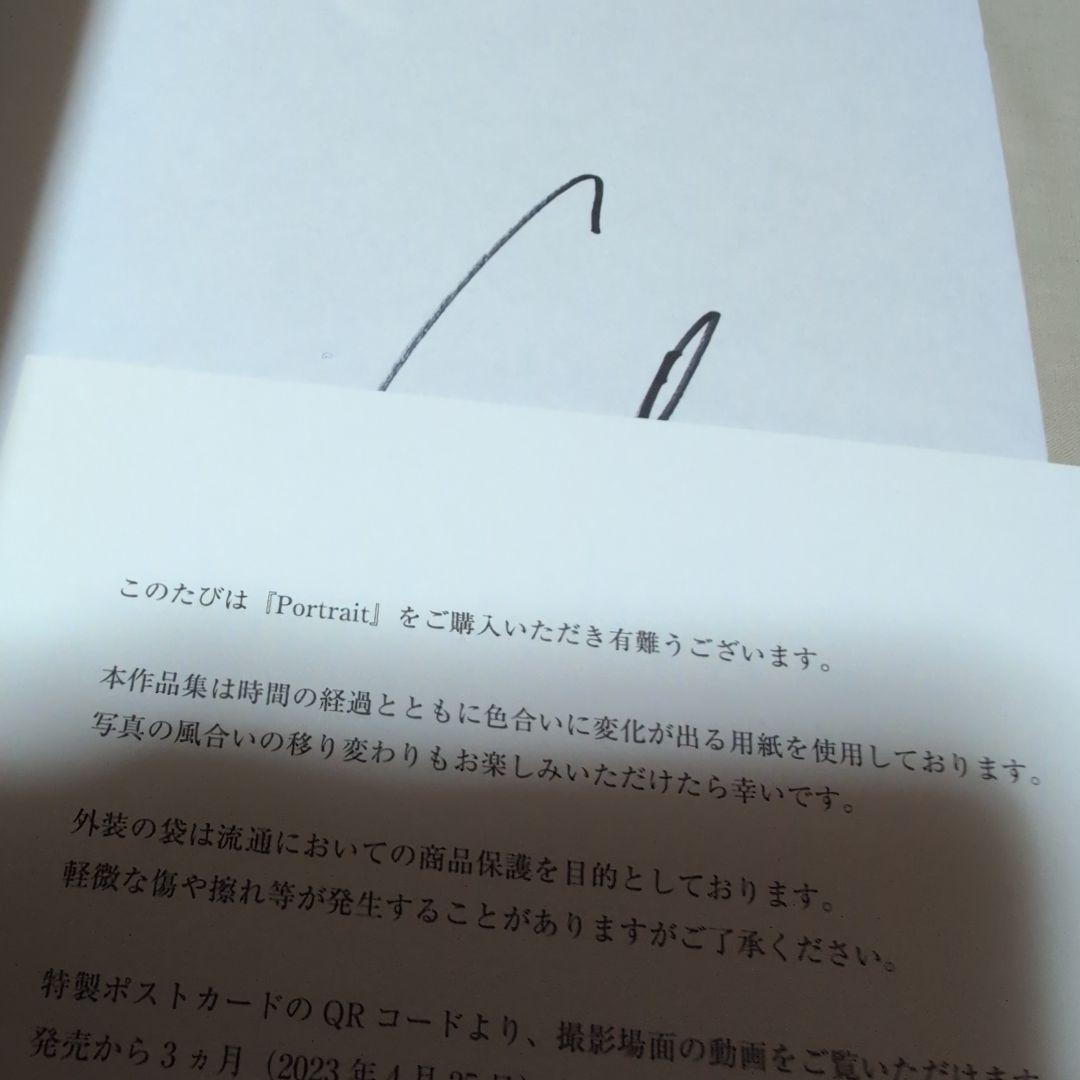 このたびは『Portrait』をご購入いただき有難うございます。
本作品集は時間の経過とともに色合いに変化が出る用紙を使用しております。
写真の風合いの移り変わりもお楽しみいただけたら幸いです。
外装の袋は流通においての商品保護を目的としております。
軽微な傷や擦れ等が発生することがありますがご了承ください。
特製ポストカードのQRコードより、撮影場面の動画をご覧いただけます
発売から3ヵ月（2023年4月25日